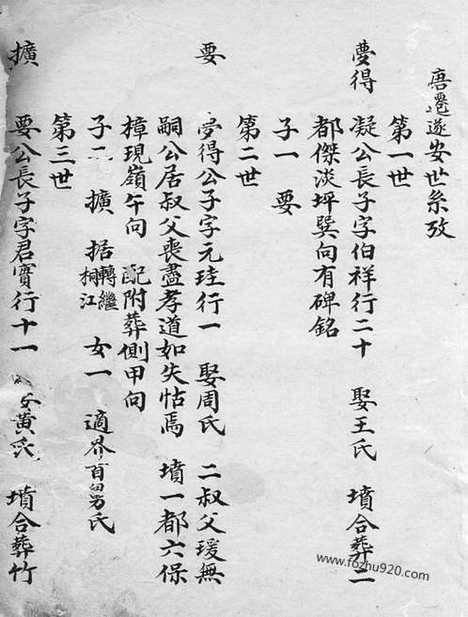 唐遷遂安世系攷
第一世
夢得 凝公長子字伯祥行二十 娶王氏 墳合葬二
都傑淡坪巽向有碑銘
子一 要
第二世
要 夢得公子字元珪行一 娶周氏 二叔父瑗無
嗣公居叔父喪盡孝道如失怙焉 墳一都六保
樟現嶺午向 配附葬側甲向
子二 擴 据轉繼桐江 女一 適界首
氏
第三世
擴 要公長子字君實行十一 黃氏 墳合葬竹
www.fozhu920.com